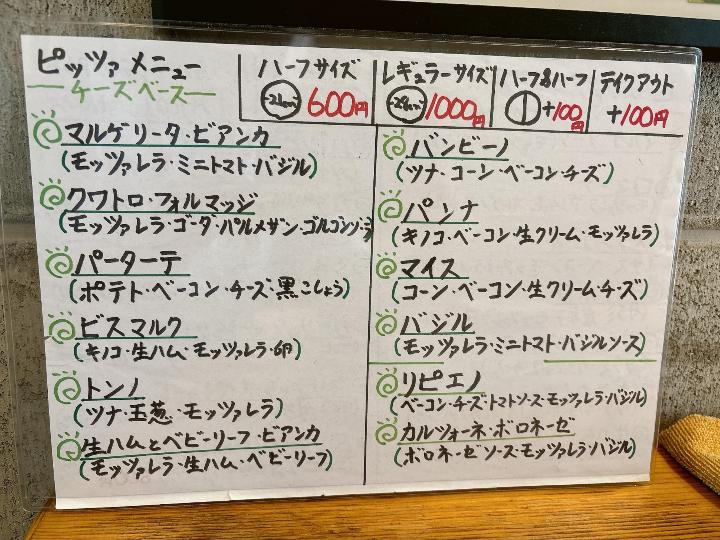 ピッツァメニュー
チーズベース
ハーフサイズ
600円
レギュラーサイズ
1000円
ハーフ&ハーフ
+100円
テイクアウト
+100円
マルゲリータ・ビアンカ
(モッツァレラ・ミニトマト・バジル)
クワトロ・フォルマッジ
(モッツァレラ・ゴーダ・パルメザン・ゴルゴンゾーラ)
パターテ
(ポテト・ベーコン・チーズ・黒こしょう)
ビスマルク
(キノコ・生ハム・モッツァレラ・卵)
トンノ
(ツナ・玉葱・モッツァレラ)
生ハムとベビーリーフ・ビアンカ
(モッツァレラ・生ハム・ベビーリーフ)
バンビーノ
(ツナ・コーン・ベーコン・チーズ)
パンナ
(キノコ・ベーコン・生クリーム・モッツァレラ)
マイス
(コーン・ベーコン・生クリーム・チーズ)
バジル
(モッツァレラ・ミニトマト・バジルソース)
リピエノ
(ベーコン・チーズ・トマトソース・モッツァレラ・バジル)
カルツォーネ・ボロネーゼ
(ボロネーゼソース・モッツァレラ・バジル)